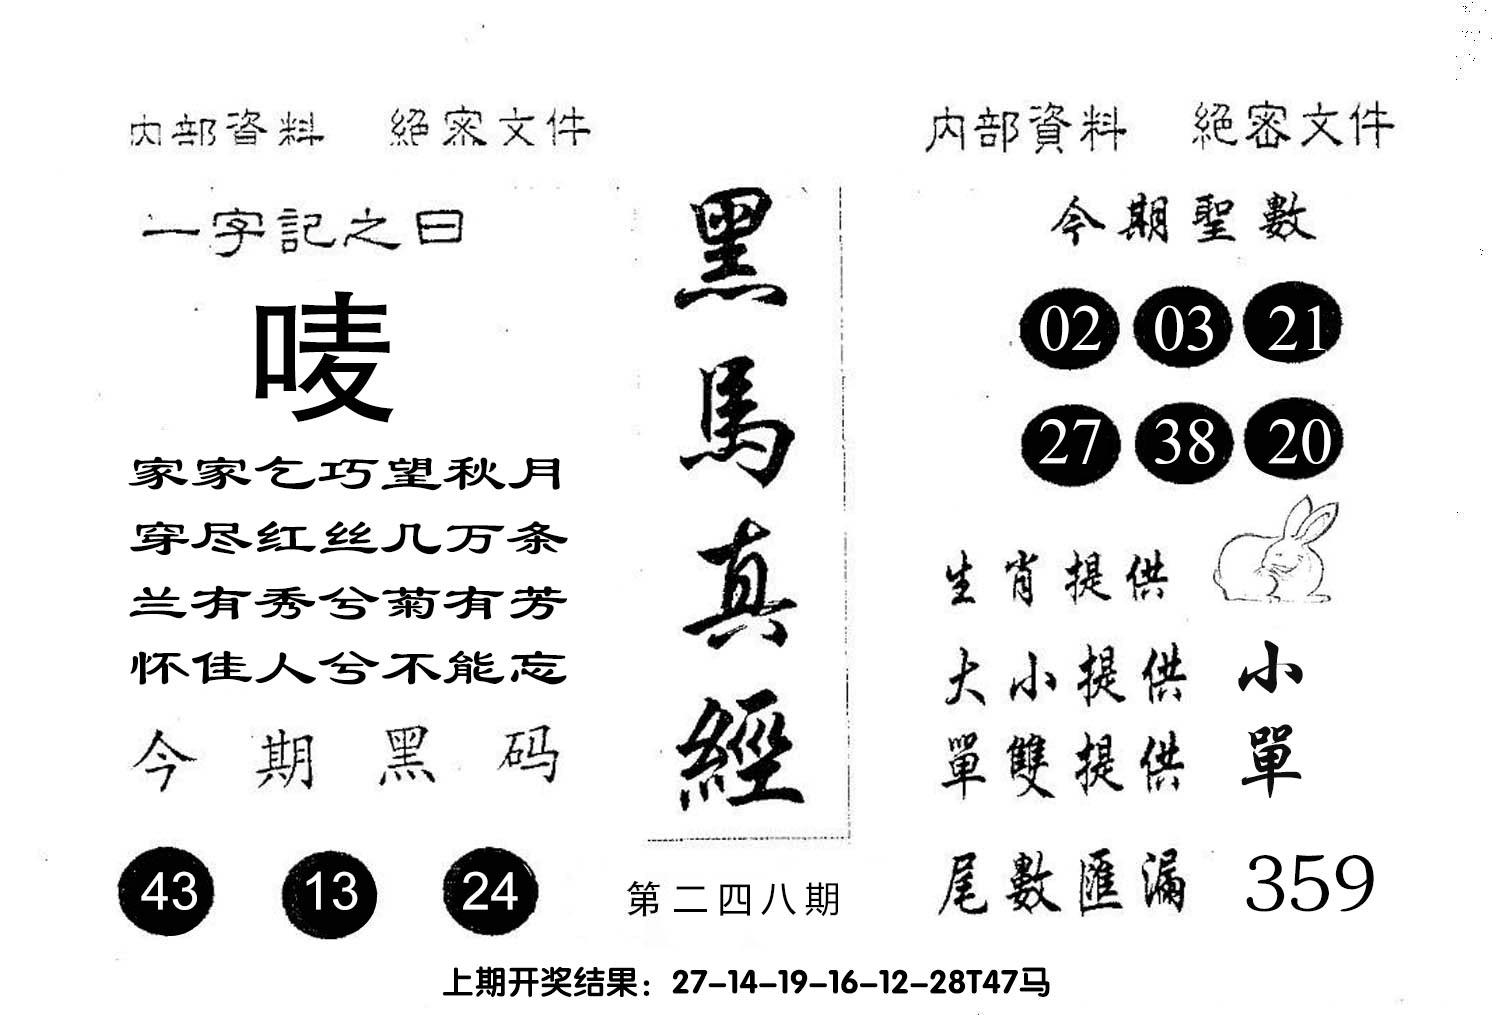 内部資料 絕密文件
一字記之曰
唛
家家乞巧望秋月
穿尽红丝几万条
兰有秀兮菊有芳
怀佳人兮不能忘
今期黑码
43 13 24
黑馬真經
第二四八期
内部資料 絕密文件
今期聖數
02 03 21
27 38 20
生肖提供
大小提供 小
單雙提供 單
尾數匯漏 359
上期开奖结果：27-14-19-16-12-28T47马